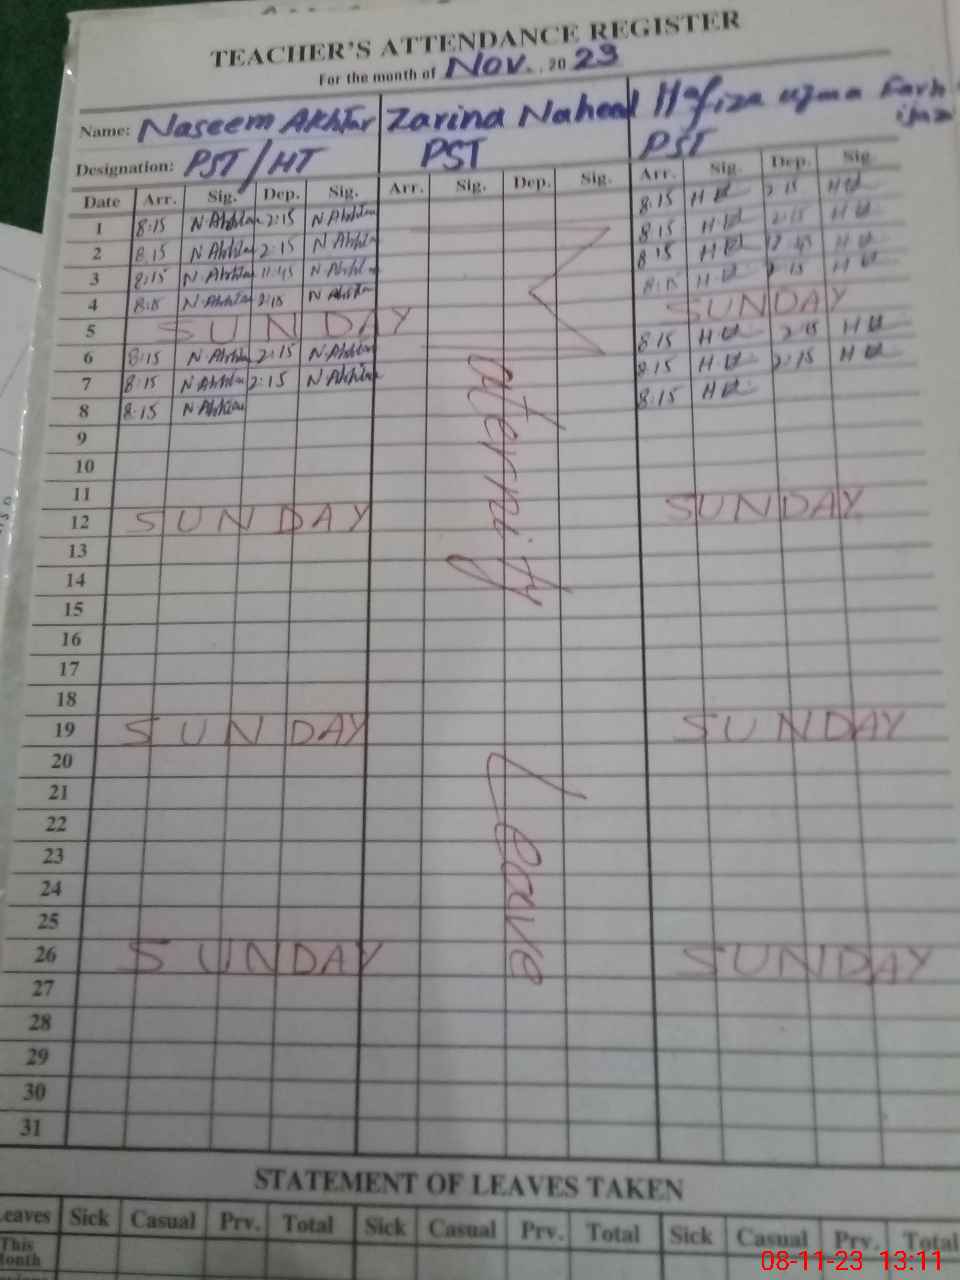 TEACHER'S ATTENDANCE REGISTER
For the month of Nov. , 20 23
Name: Naseem Akhtar Zarina Naheed Hafiza uzma Farh
Designation: PST/HT PST PST
Date Arr. Sig. Dep. Sig. Arr. Sig. Dep. Sig. Arr. Sig. Dep. Sig.
1 8:15 N Akhtar 2:15 N Akhtar 8:15 2:15
2 8:15 N Akhtar 2:15 N Akhtar 8:15 2:15
3 8:15 N Akhtar 11:45 N Akhtar 8:15 12:45
4 8:15 N Akhtar 2:15 N Akhtar 8:15 2:15
5 SUNDAY SUNDAY
6 8:15 N Akhtar 2:15 N Akhtar 8:15 2:15
7 8:15 N Akhtar 2:15 N Akhtar 8:15 2:15
8 8:15 N Akhtar 8:15
9
10
11
12 SUNDAY SUNDAY
13
14
15
16
17
18
19 SUNDAY SUNDAY
20
21
22
23
24
25
26 SUNDAY SUNDAY
27
28
29
30
31
Maternity Leave
STATEMENT OF LEAVES TAKEN
Leaves Sick Casual Prv. Total Sick Casual Prv. Total Sick Casual Prv. Total
This
Month
08-11-23 13:11